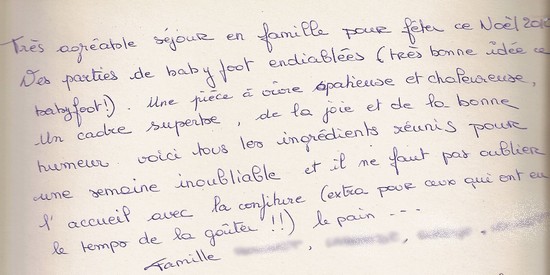 Très agréable séjour en famille pour fêter ce Noël
Des parties de baby foot endiablées (très bonne idée ce
babyfoot!). Une pièce à vivre spatieuse et chaleureuse,
Un cadre superbe, de la joie et de la bonne
humeur voici tous les ingrédients réunis pour
une semaine inoubliable et il ne faut pas oublier
l'accueil avec la confiture (extra pour ceux qui ont eu
le temps de la goûter !!) le pain ...
Famille